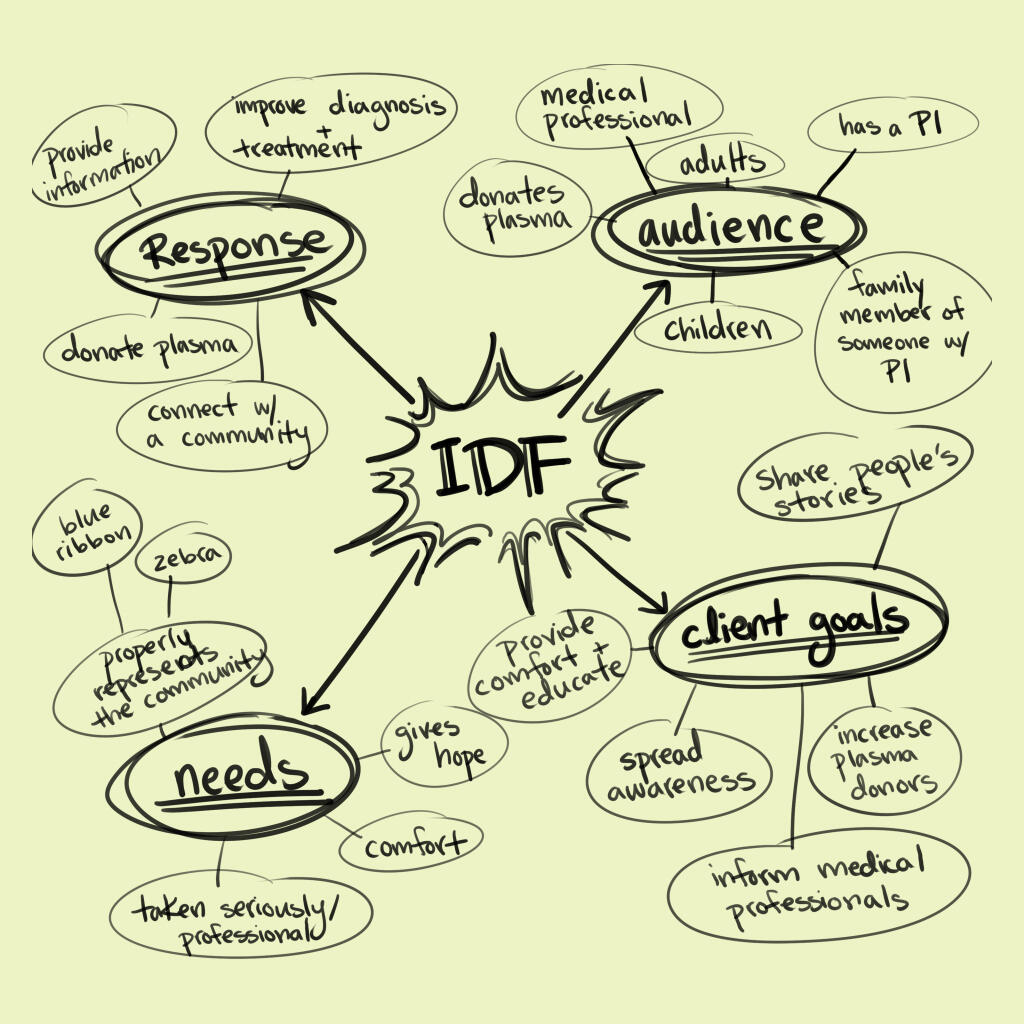 IDF
Response
provide
information
improve diagnosis
+
treatment
donate plasma
connect w/
a community
audience
medical
professional
adults
has a PI
donates
plasma
children
family
member of
someone w/
PI
needs
properly
represents
the community
blue
ribbon
zebra
gives
hope
comfort
taken seriously/
professional
client goals
share people's
stories
provide
comfort +
educate
spread
awareness
increase
plasma
donors
inform medical
professionals